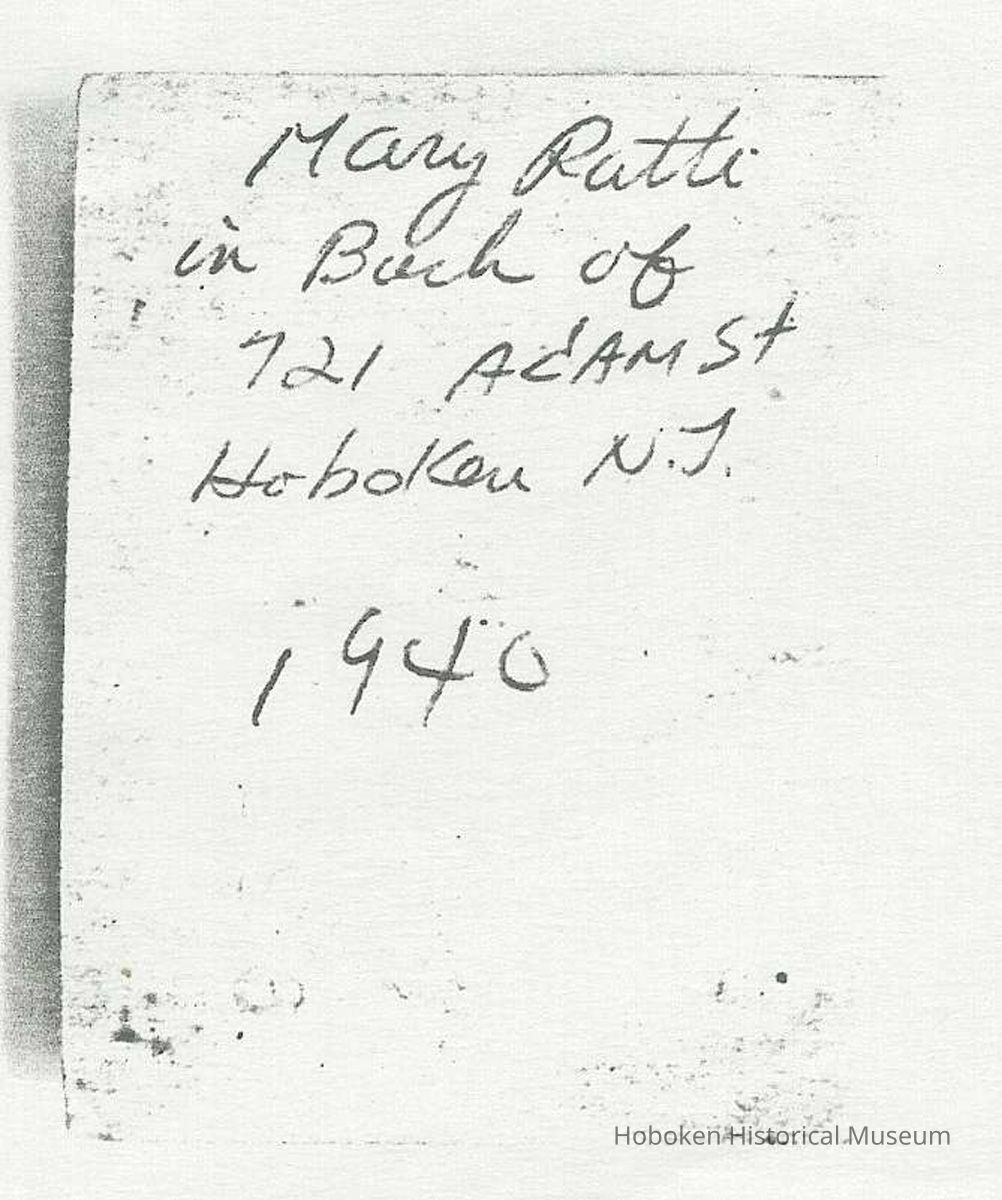 Mary Ratti
in Back of
721 AdAM St
Hoboken N.J.
1940
Hoboken Historical Museum